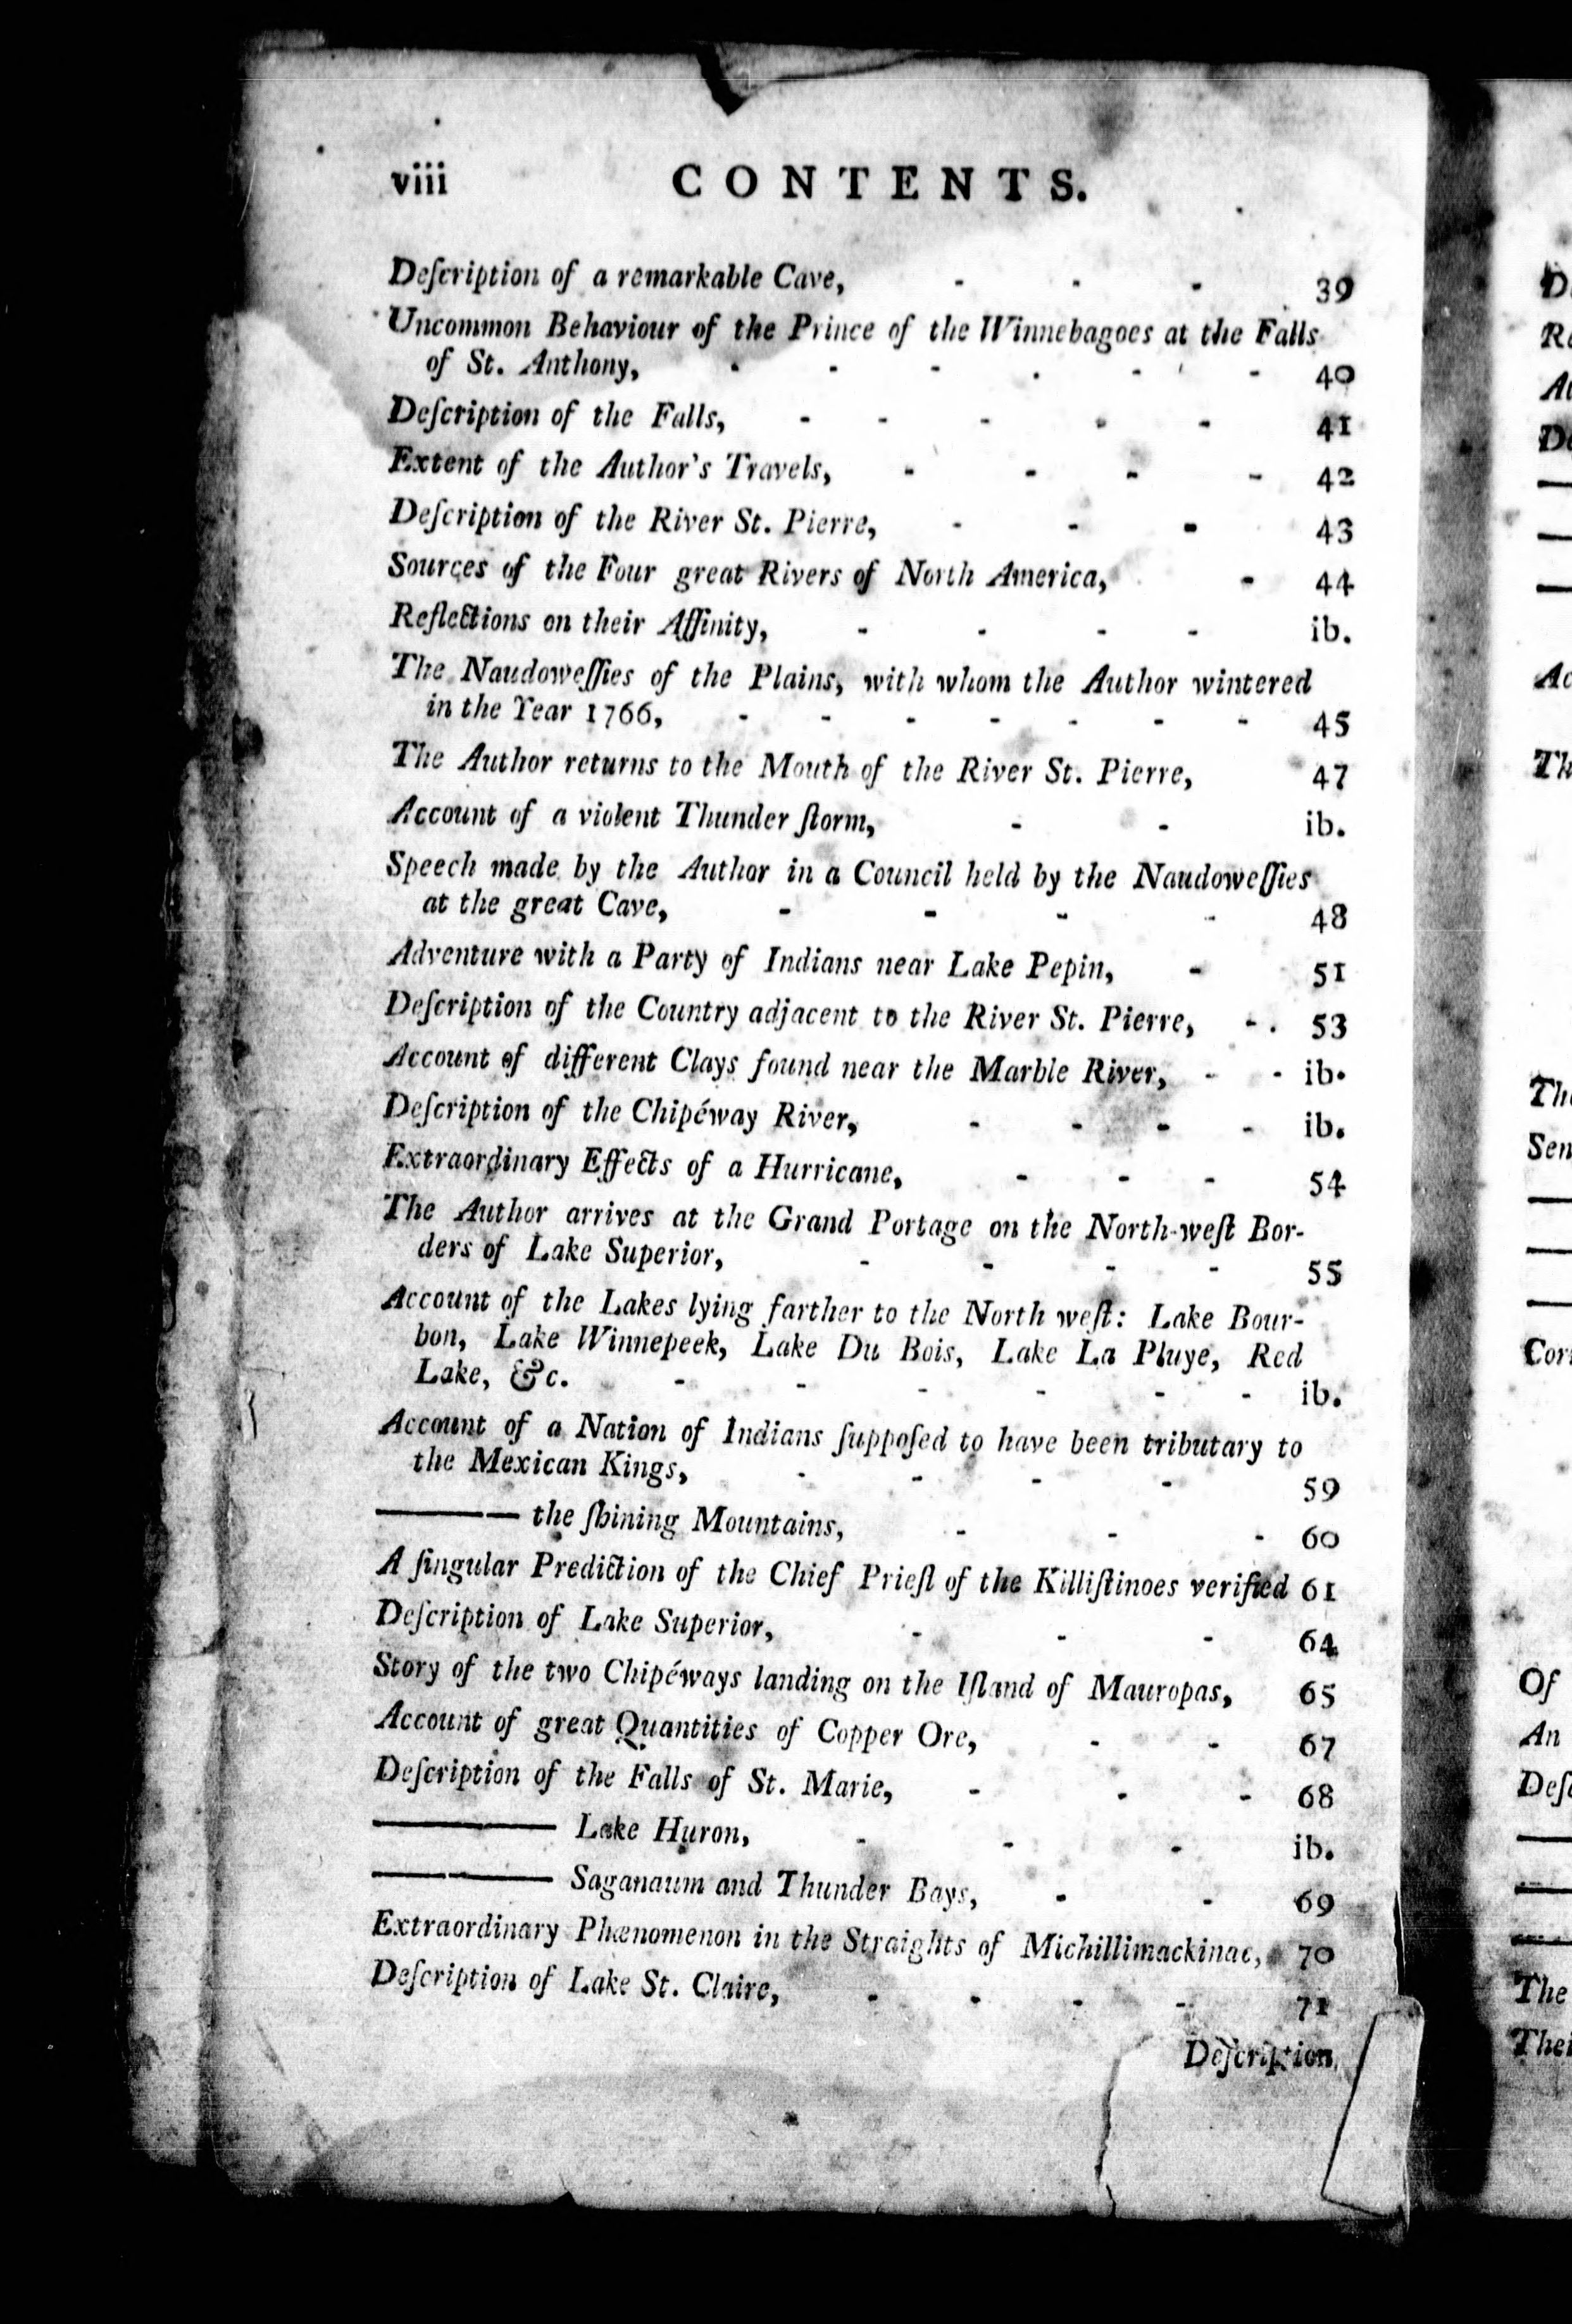 viii CONTENTS.
Deſcription of a remarkable Cave, - - - 39
Uncommon Behaviour of the Prince of the Winnebagoes at the Falls
of St. Anthony, - - - - - - 40
Deſcription of the Falls, - - - - - 41
Extent of the Author's Travels, - - - - 42
Deſcription of the River St. Pierre, - - - 43
Sources of the Four great Rivers of North America, - 44
Reflections on their Affinity, - - - - ib.
The Naudoweſſies of the Plains, with whom the Author wintered
in the Year 1766, - - - - - - - 45
The Author returns to the Mouth of the River St. Pierre, 47
Account of a violent Thunder ſtorm, - - ib.
Speech made by the Author in a Council held by the Naudoweſſies
at the great Cave, - - - - 48
Adventure with a Party of Indians near Lake Pepin, - 51
Deſcription of the Country adjacent to the River St. Pierre, - . 53
Account of different Clays found near the Marble River, - - ib.
Deſcription of the Chipéway River, - - - - ib.
Extraordinary Effects of a Hurricane, - - - 54
The Author arrives at the Grand Portage on the North-weſt Bor-
ders of Lake Superior, - - - - 55
Account of the Lakes lying farther to the North weſt: Lake Bour-
bon, Lake Winnepeek, Lake Du Bois, Lake La Pluye, Red
Lake, &c. - - - - - - ib.
Account of a Nation of Indians ſuppoſed to have been tributary to
the Mexican Kings, - - - - 59
——— the ſhining Mountains, - - - 60
A ſingular Prediction of the Chief Prieſt of the Killiſtinoes verified 61
Deſcription of Lake Superior, - - - 64
Story of the two Chipéways landing on the Iſland of Mauropas, 65
Account of great Quantities of Copper Ore, - - 67
Deſcription of the Falls of St. Marie, - - - 68
——— Lake Huron, - - - ib.
——— Saganaum and Thunder Bays, - - 69
Extraordinary Phænomenon in the Straights of Michillimackinac, 70
Deſcription of Lake St. Claire, - - - - 71
Deſcription